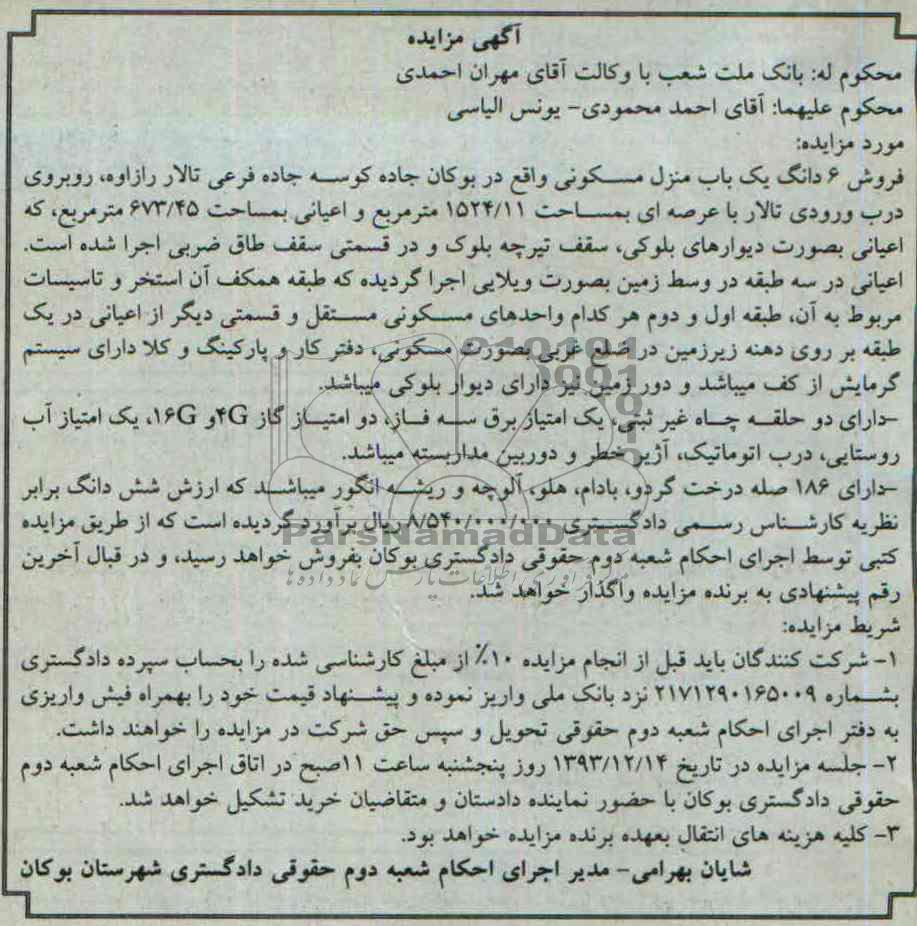 آگهی مزایده
محکوم له: بانک ملت شعب با وکالت آقای مهران احمدی
محکوم علیهما: آقای احمد محمودی- یونس الیاسی
مورد مزایده:
فروش ۶ دانگ یک باب منزل مسکونی واقع در بوکان جاده کوسه جاده فرعی تالار رازاوه، روبروی
درب ورودی تالار با عرصه ای بمساحت ۱۵۲۴/۱۱ مترمربع و اعیانی بمساحت ۶۷۳/۴۵ مترمربع، که
اعیانی بصورت دیوارهای بلوکی، سقف تیرچه بلوک و در قسمتی سقف طاق ضربی اجرا شده است.
اعیانی در سه طبقه در وسط زمین بصورت ویلایی اجرا گردیده که طبقه همکف آن استخر و تاسیسات
مربوط به آن، طبقه اول و دوم هر کدام واحدهای مسکونی مستقل و قسمتی دیگر از اعیانی در یک
طبقه بر روی دهنه زیرزمین در ضلع غربی بصورت مسکونی، دفتر کار و پارکینگ و کلا دارای سیستم
گرمایش از کف میباشد و دور زمین نیز دارای دیوار بلوکی میباشد.
-دارای دو حلقه چاه غیر ثبتی، یک امتیاز برق سه فاز، دو امتیاز گاز ۴Gو ۱۶G، یک امتیاز آب
روستایی، درب اتوماتیک، آژیر خطر و دوربین مداربسته میباشد.
-دارای ۱۸۶ صله درخت گردو، بادام، هلو، آلوچه و ریشه انگور میباشد که ارزش شش دانگ برابر
نظریه کارشناس رسمی دادگستری ۸/۵۴۰/۰۰۰/۰۰۰ ریال برآورد گردیده است که از طریق مزایده
ParsNamadData
کتبی توسط اجرای احکام شعبه دوم حقوقی دادگستری بوکان بفروش خواهد رسید، و در قبال آخرین
رقم پیشنهادی به برنده مزایده واگذار خواهد شد.
شریط مزایده:
۱- شرکت کنندگان باید قبل از انجام مزایده ۱۰٪ از مبلغ کارشناسی شده را بحساب سپرده دادگستری
بشماره ۲۱۷۱۲۹۰۱۶۵۰۰۹ نزد بانک ملی واریز نموده و پیشنهاد قیمت خود را بهمراه فیش واریزی
به دفتر اجرای احکام شعبه دوم حقوقی تحویل و سپس حق شرکت در مزایده را خواهند داشت.
۲- جلسه مزایده در تاریخ ۱۳۹۳/۱۲/۱۴ روز پنجشنبه ساعت ۱۱صبح در اتاق اجرای احکام شعبه دوم
حقوقی دادگستری بوکان با حضور نماینده دادستان و متقاضیان خرید تشکیل خواهد شد.
۳- کلیه هزینه های انتقال بعهده برنده مزایده خواهد بود.
شایان بهرامی- مدیر اجرای احکام شعبه دوم حقوقی دادگستری شهرستان بوکان